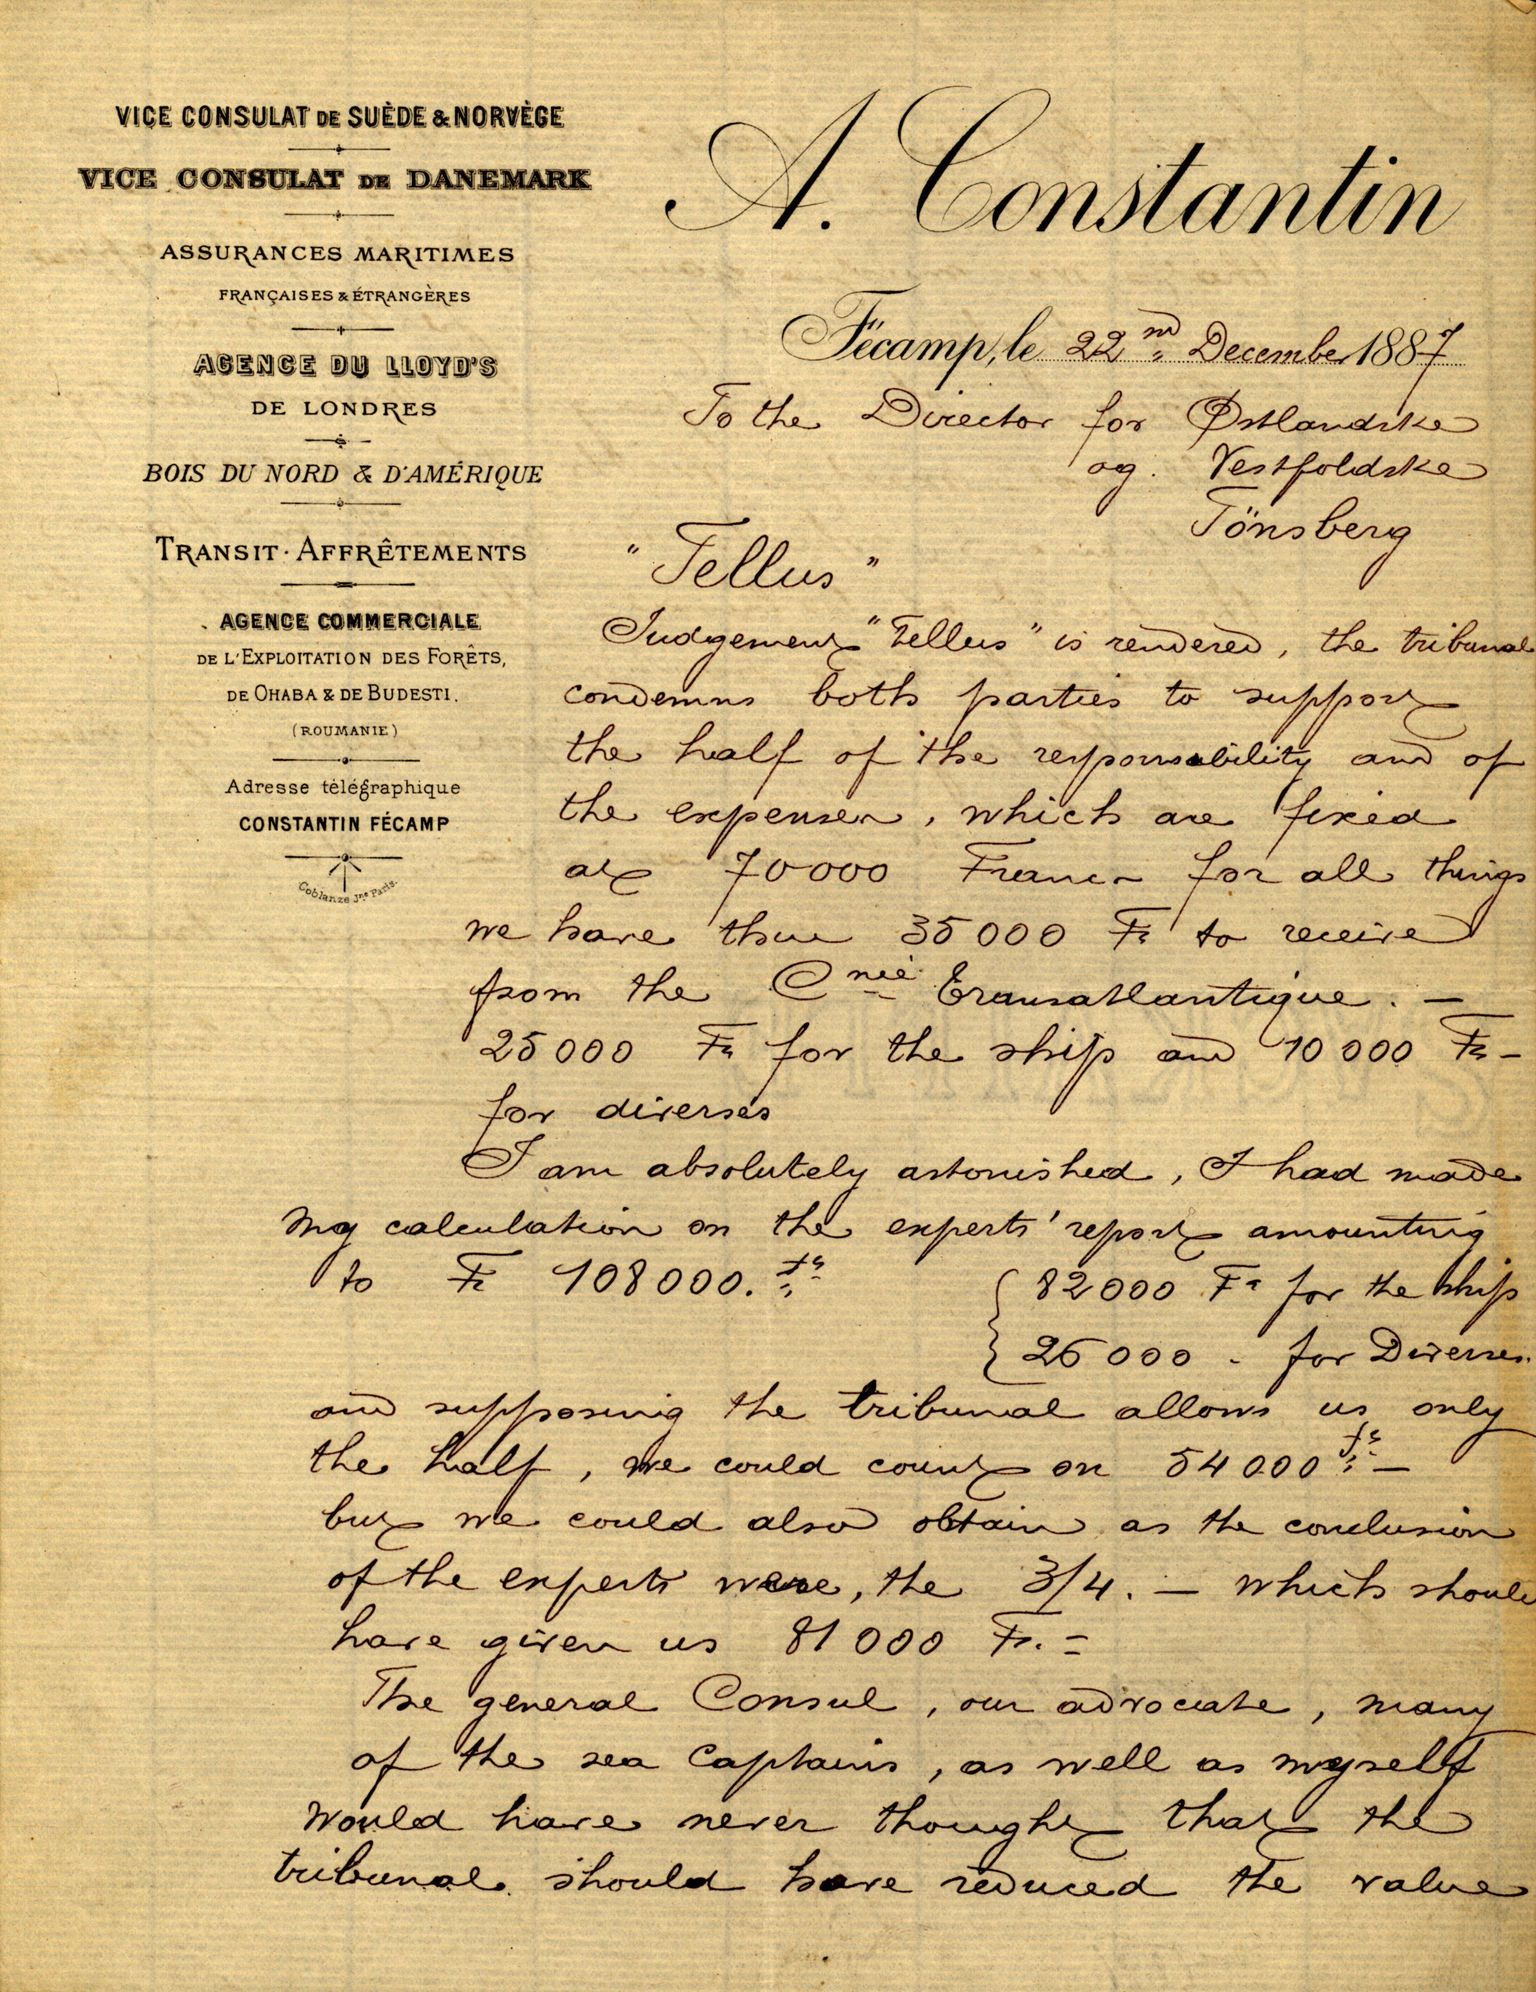 VICE CONSULAT DE SUÈDE & NORVÈGE
VICE CONSULAT DE DANEMARK
ASSURANCES MARITIMES
FRANÇAISES & ÉTRANGÈRES
AGENCE DU LLOYD'S
DE LONDRES
BOIS DU NORD & D'AMÉRIQUE
TRANSIT · AFFRÊTEMENTS
AGENCE COMMERCIALE
DE L'EXPLOITATION DES FORÊTS,
DE OHABA & DE BUDESTI.
(ROUMANIE)
Adresse télégraphique
CONSTANTIN FÉCAMP
Coblanze Jne Paris.
A. Constantin
Fécamp, le 22nd December 1887
To the Director for Østlandske
og. Vestfoldske
Tönsberg
"Tellus"
Judgement "Tellus" is rendered, the tribunal
condemns both parties to support
the half of the responsability and of
the expenses, which are fixed
at 70000 Francs for all things
we have thus 35000 Fr to receive
from the Cnie Transatlantique. —
25000 Fr for the ship and 10000 Fr –
for diverses
I am absolutely astonished, I had made
my calculation on the experts' report amounting
to Fr 108000. fs
{ 82000 Fr for the ship
26000 - for Diverses.
and supposing the tribunal allows us only
the half, we could count on 54000 fs —
but we could also obtain as the conclusion
of the experts were, the 3/4. — which should
have given us 81000 Fr. =
The general Consul, our advocate, many
of the sea Captains, as well as myself
would have never thought that the
tribunal should have reduced the value